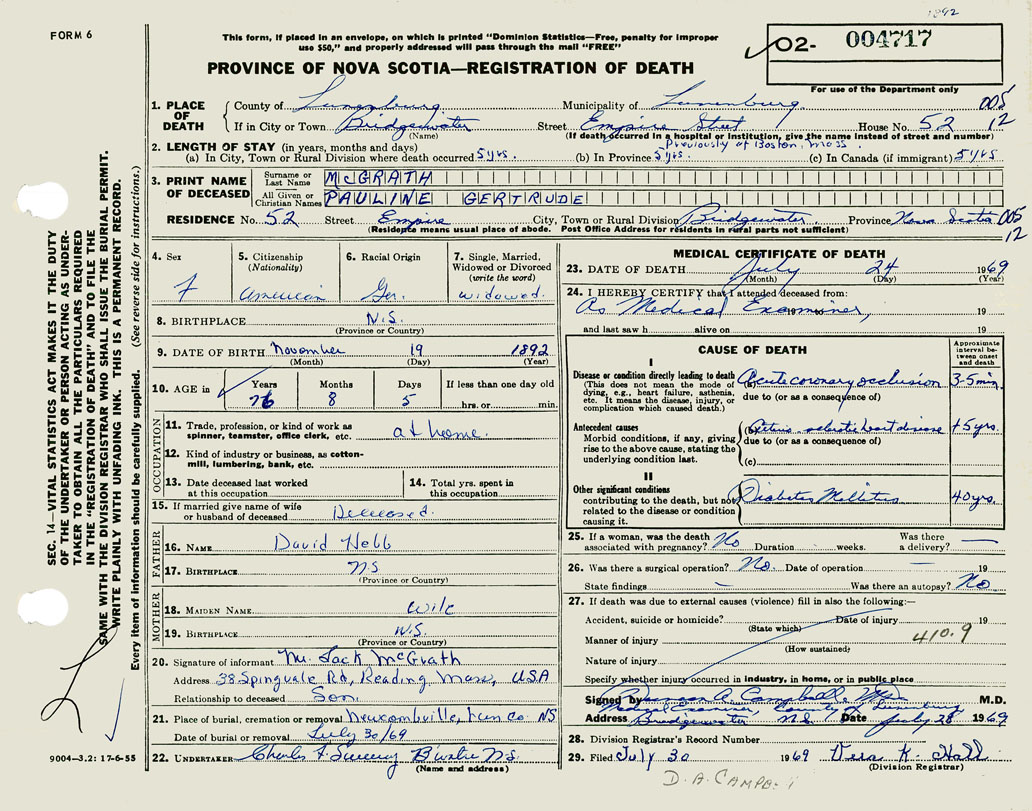 1892
FORM 6
This form, if placed in an envelope, on which is printed "Dominion Statistics—Free, penalty for improper
use $50," and properly addressed will pass through the mail "FREE"
02- 004717
For use of the Department only
PROVINCE OF NOVA SCOTIA—REGISTRATION OF DEATH
1. PLACE OF DEATH County of Lunenburg Municipality of Lunenburg 005
If in City or Town Bridgewater Street Empire Street House No. 52 12
(Name) (If death occurred in a hospital or institution, give the name instead of street and number)
2. LENGTH OF STAY (in years, months and days) Previously of Boston, Mass.
(a) In City, Town or Rural Division where death occurred 5 yrs. (b) In Province 5 yrs. (c) In Canada (if immigrant) 5 yrs
3. PRINT NAME OF DECEASED
Surname or Last Name McGRATH
All Given or Christian Names PAULINE GERTRUDE
RESIDENCE No. 52 Street Empire City, Town or Rural Division Bridgewater Province Nova Scotia 005
12
(Residence means usual place of abode. Post Office Address for residents in rural parts not sufficient)
4. Sex F
5. Citizenship (Nationality) American
6. Racial Origin Ger.
7. Single, Married, Widowed or Divorced (write the word) widowed.
8. BIRTHPLACE N.S.
(Province or Country)
9. DATE OF BIRTH November 19 1892
(Month) (Day) (Year)
10. AGE in Years 76 Months 8 Days 5 If less than one day old
hrs. or min.
OCCUPATION
11. Trade, profession, or kind of work as
spinner, teamster, office clerk, etc. at home.
12. Kind of industry or business, as cotton-
mill, lumbering, bank, etc.
13. Date deceased last worked
at this occupation
14. Total yrs. spent in
this occupation
15. If married give name of wife
or husband of deceased Deceased.
FATHER
16. NAME David Hebb
17. BIRTHPLACE NS
(Province or Country)
MOTHER
18. MAIDEN NAME Wile
19. BIRTHPLACE N.S.
(Province or Country)
20. Signature of informant Mr. Jack McGrath
Address 38 Rd, Reading Mass, USA
Relationship to deceased Son.
21. Place of burial, cremation or removal Newcombville, Lun co. NS
Date of burial or removal July 30/69
22. UNDERTAKER Charles N.S.
(Name and address)
MEDICAL CERTIFICATE OF DEATH
23. DATE OF DEATH July 24 1969
(Month) (Day) (Year)
24. I HEREBY CERTIFY that I attended deceased from:
As Medical Examiner, 19
and last saw h alive on 19
CAUSE OF DEATH
Approximate interval between onset and death
I
Disease or condition directly leading to death
(This does not mean the mode of
dying, e.g., heart failure, asthenia,
etc. It means the disease, injury, or
complication which caused death.)
(a) Acute coronary occlusion 3-5 min.
due to (or as a consequence of)
Antecedent causes
Morbid conditions, if any, giving
rise to the above cause, stating the
underlying condition last.
(b) heart disease +5 yrs.
due to (or as a consequence of)
(c)
II
Other significant conditions
contributing to the death, but not
related to the disease or condition
causing it.
Diabetes Mellitus 40 yrs.
25. If a woman, was the death
associated with pregnancy? No Duration weeks. Was there
a delivery? —
26. Was there a surgical operation? No. Date of operation — 19
State findings — Was there an autopsy? No
27. If death was due to external causes (violence) fill in also the following:—
Accident, suicide or homicide? Date of injury 19
(State which)
Manner of injury 410.9
(How sustained)
Nature of injury
Specify whether injury occurred in industry, in home, or in public place
Signed by Duncan A. Campbell, M.D.
Medical Examiner, County of Lunenburg
Address Bridgewater N.S. Date July 28 1969
28. Division Registrar's Record Number
29. Filed July 30 1969 Vera K. Hall
(Division Registrar)
D. A. CAMPBELL
SEC. 14—VITAL STATISTICS ACT MAKES IT THE DUTY
OF THE UNDERTAKER OR PERSON ACTING AS UNDER-
TAKER TO OBTAIN ALL THE PARTICULARS REQUIRED
IN THE "REGISTRATION OF DEATH" AND TO FILE THE
SAME WITH THE DIVISION REGISTRAR WHO SHALL ISSUE THE BURIAL PERMIT.
WRITE PLAINLY WITH UNFADING INK. THIS IS A PERMANENT RECORD.
Every item of information should be carefully supplied. (See reverse side for instructions.)
9004—3.2: 17-6-55